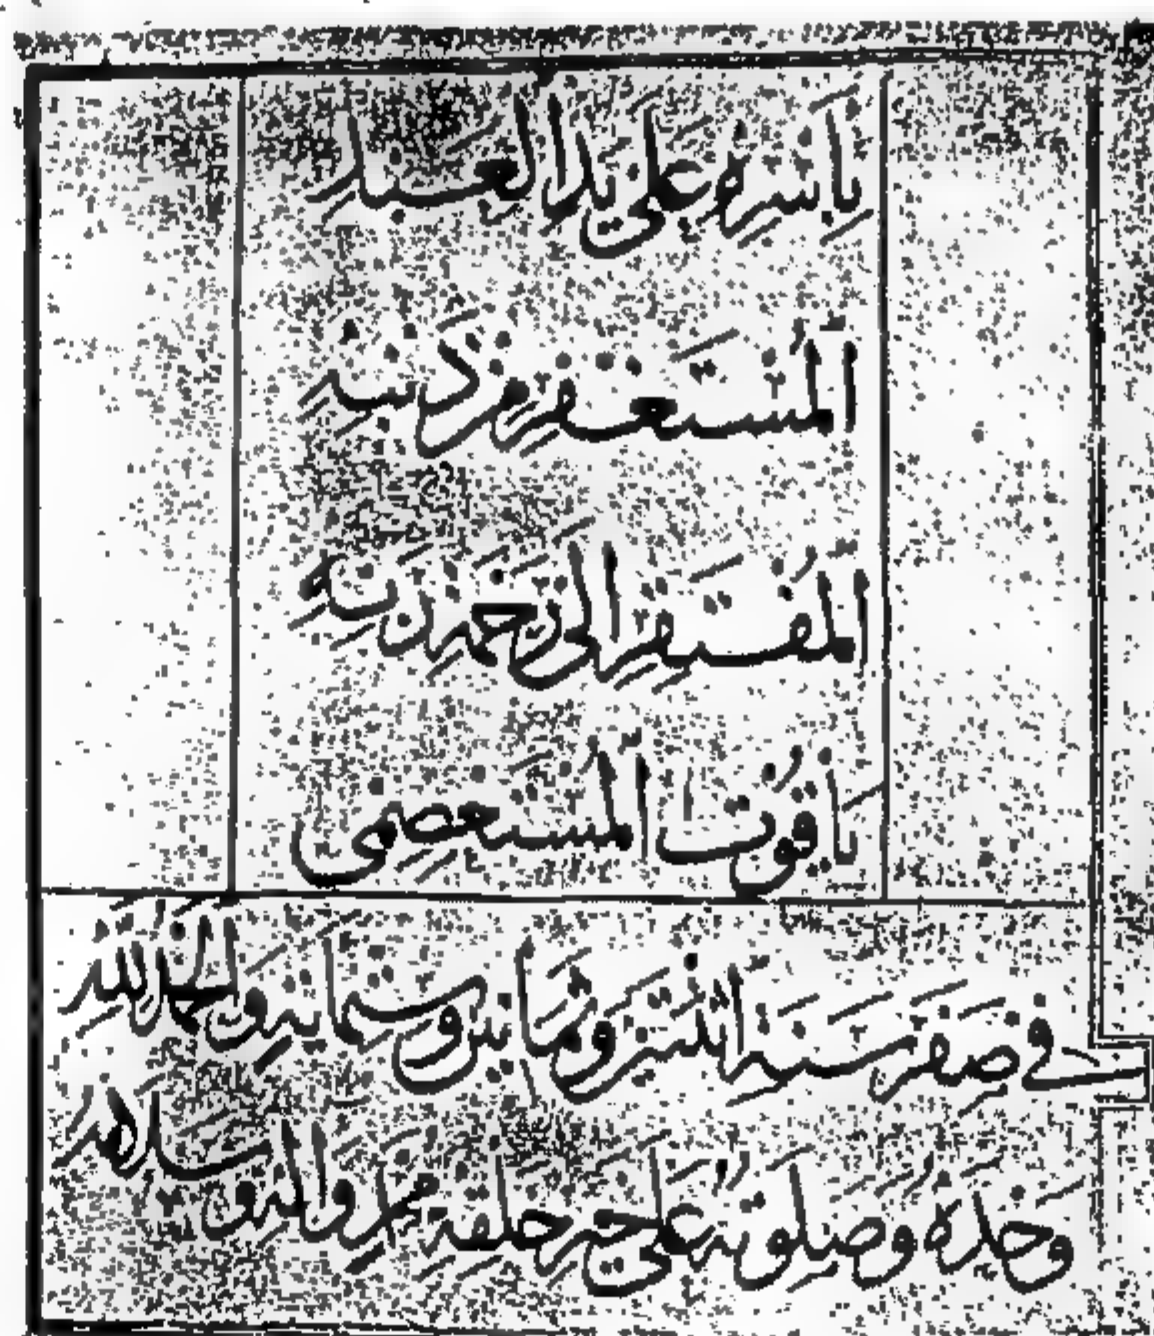 بِأَسْرِهِ عَلَى يَدِ الْعَبْدِ
الْمُسْتَغْفِرِ مِنْ ذَنْبِهِ
الْمُفْتَقِرِ إِلَى رَحْمَةِ رَبِّهِ
يَاقُوت الْمُسْتَعْصِمِي
فِي صَفَر سَنَةِ اثْنَتَيْنِ وَثَمَانِينَ وَسِتِّمِائَةٍ وَالْحَمْدُ لِلَّهِ
وَحْدَهُ وَصَلَوتُهُ عَلَى خَيْرِ خَلْقِهِ مُحَمَّدٍ وَآلِهِ وَسَلَامُهُ